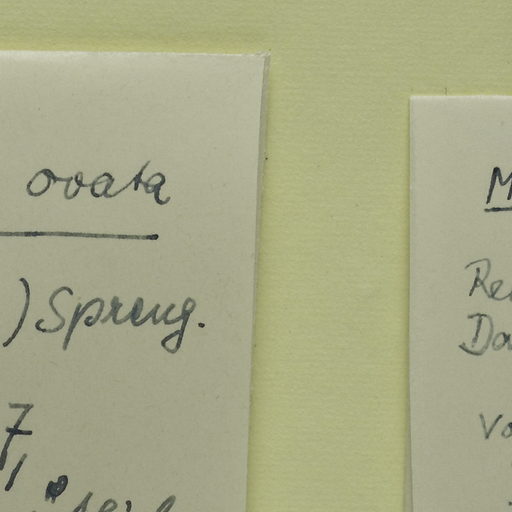 ovata
) Spreng.
7,
M
Re
Da
Vo